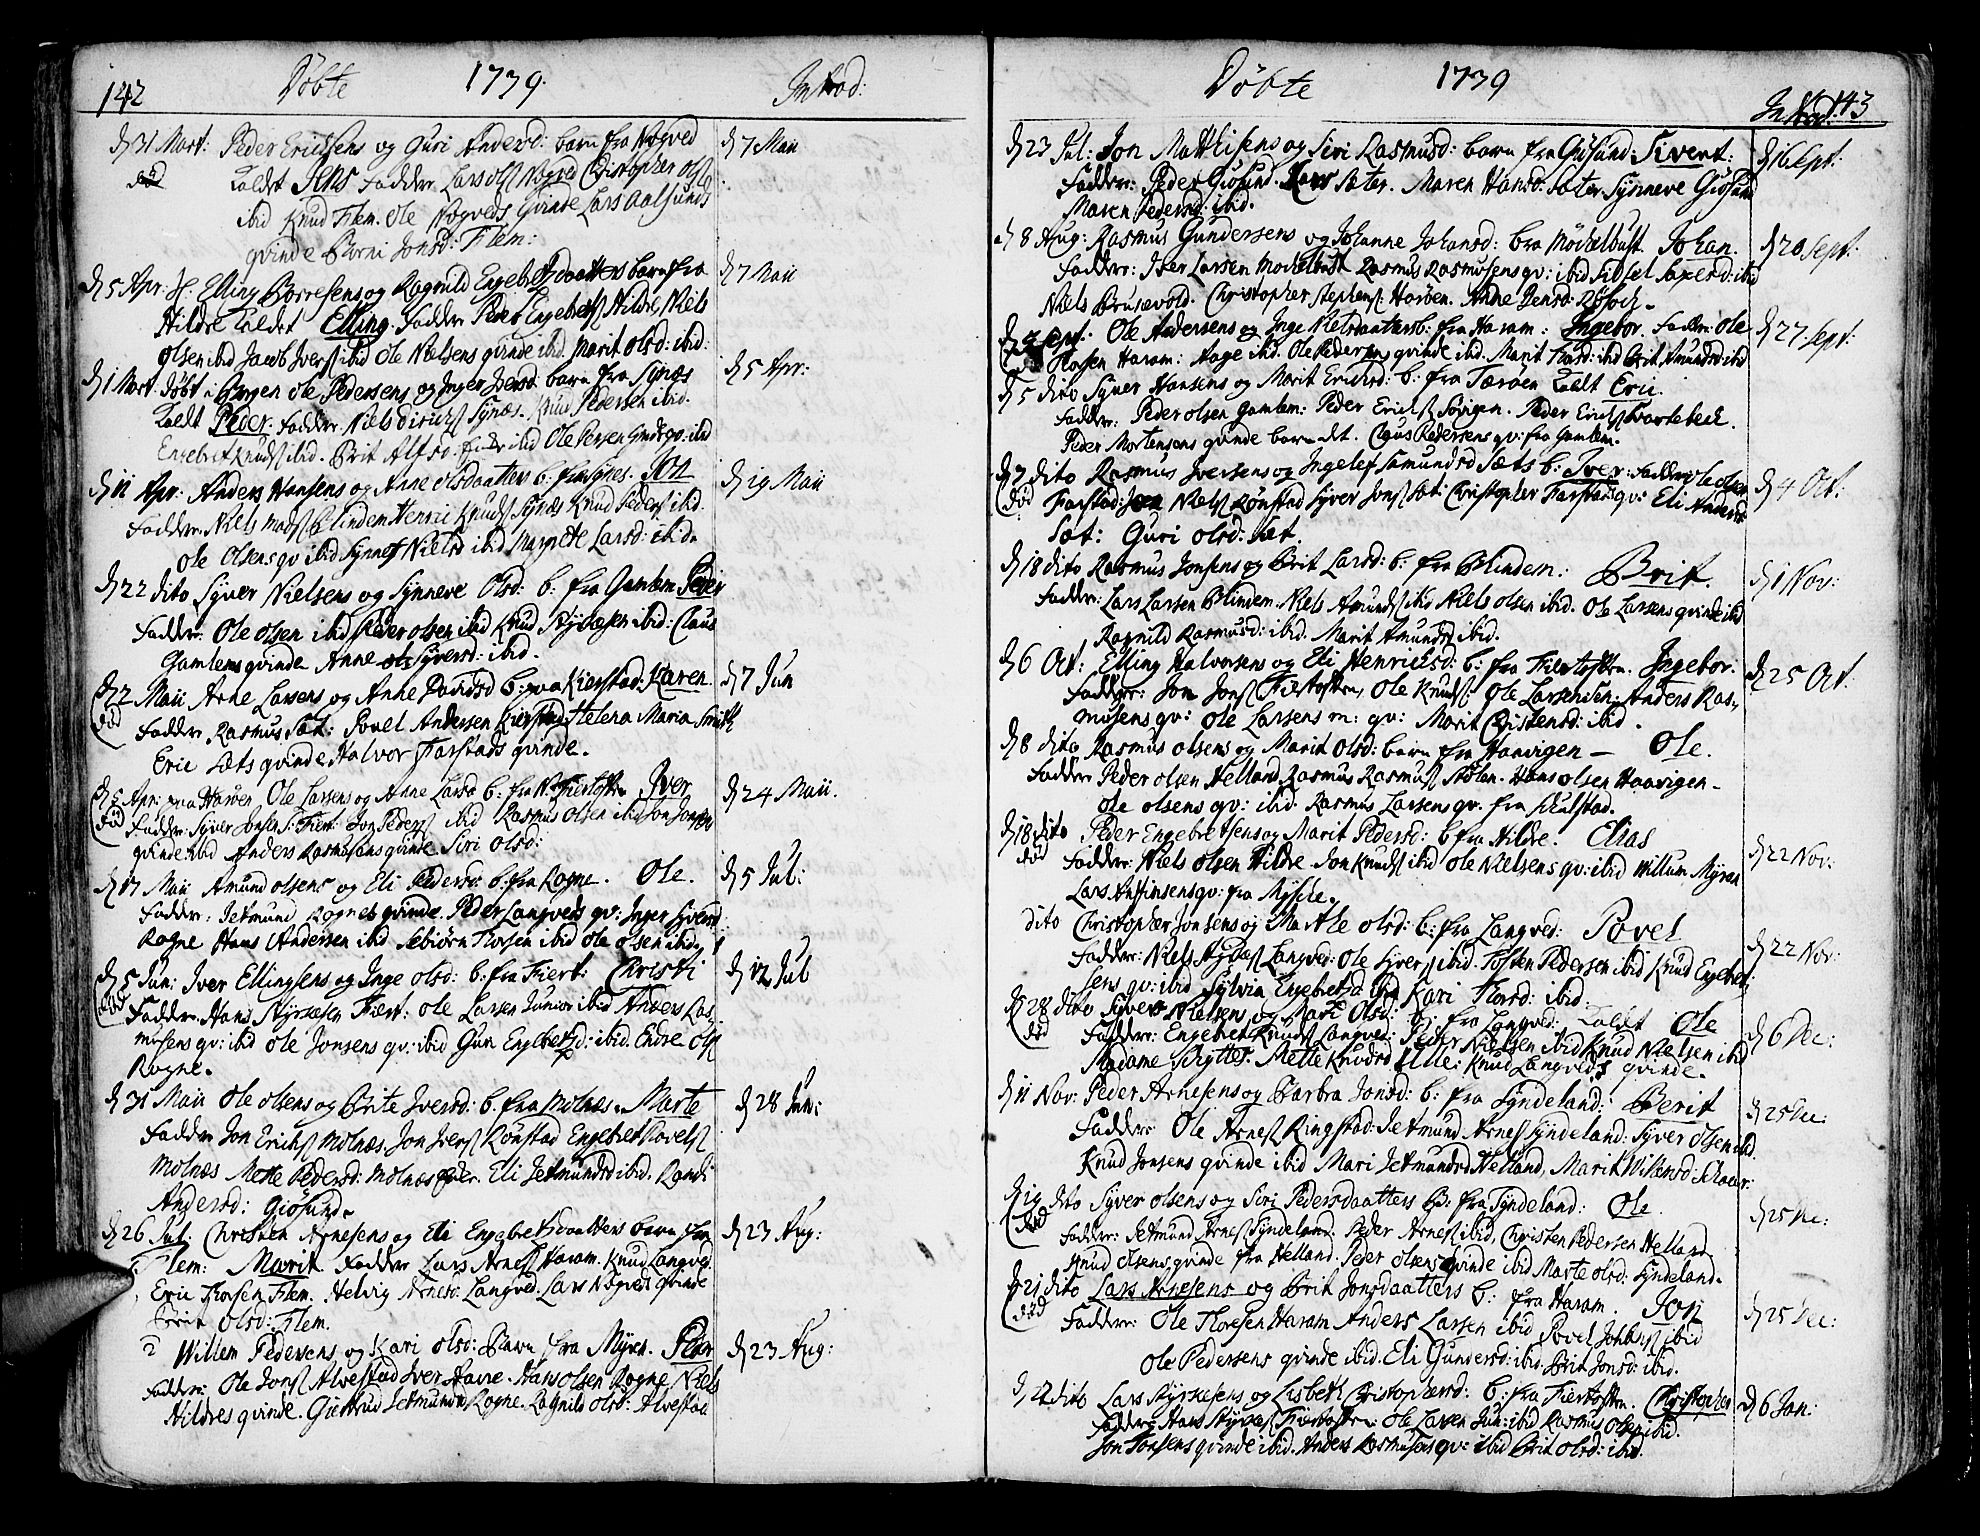 142 Döbte 1739. Introd:
d 31 Mart: Peder Erichsens og Guri Andersd: barn fra Nogved d 7 Maii
Kaldet Jens Faddere Lars Ols Nogved Christopher Ols
ibid Knud Flem. Ole Nogveds Qvinde Lars Aalsunds
qvinde Borni Jonsd: Flem:
d 5 Apr: Elling Borresens og Ragnild Engebretsdaatters barn fra d 7 Maii
Hildre Kaldet Elling. Faddere Peder Engebrets Hildre, Niels
Olsen ibid Jacob Ivers ibid Ole Nielsens qvinde ibid Marit Olsd: ibid:
d 1 Mart: döbt i Ole Pedersens og Inger Iversd barn fra Synæs d 5 Apr:
Kaldt Peder. Faddere Niels Synæs. Knud Pedersen ibid.
Engebret Knuds ibid. Brit Alfsd. ibid Ole
d 11 Apr: Anders Hansens og Anne Olsdaatters b. fra Synes. Jon d 19 Maii
Faddere: Niels Mads Blindem Henric Knuds Synæs Knud Peders ibid.
Ole Olsens qv ibid Synnef Nielsd ibid Margrete Larsd: ibid.
d 22 dito Syver Nielsens og Synneve Olsd: b: fra Gamlem Peder
Faddere: Ole Olsen ibid Peder Olsen ibid Knud ibid: Claus
Gamlems qvinde Anne Syversd: ibid.
d 22 Maii Arne Larsens og Anne b: fra Kierstad: Karen. d 7 Jun
död Faddere Rasmus Sæt: Povel Andersen Kierstad Helena Maria Smith
Eric Sæts qvinde Halvor Farstads qvinde.
d 5 Apr: Haröen Ole Larsens og Anne Larsd b: fra N. Fiertoften Iver d 24 Maii.
död Faddere: Syver Jonsen S: Fiert: Jon Peders ibid Rasmus Olsen ibid Jon Jonsens
qvinde ibid Anders Rasmusens qvinde Siri Olsd:
d 17 Maii Amund Olsens og Eli Pedersd: b: fra Rogne. Ole. d 5 Jul:
Faddere: Jetmund Rognes qvinde. Peder Langveds qv: Inger Syversd
Rogne Hans Andersen ibid Sebiörn Thorsen ibid Ole Olsen ibid.
d 5 Jun: Iver Ellingsens og Inge Olsd: b: fra Fiert: Christi d 12 Jul
död Faddere: Hans Fiert: Ole Larsen Junior ibid Anders Ras-
musens qv: ibid Ole Jonsens qv: ibid Guri Engebretsd: ibid: Endre Ols
Rogne.
d 31 Maii Ole Olsens og Brite Iversd: b: fra Molnæs. Marte d 28 Jun:
Faddere Jon Erichs Molnæs, Jon Ivers Rönstad Engebret Povels
Molnæs Mette Pedersd: Molnæs Eli Jetmundsd ibid. Randi
Andersd: Giösund.
d 26 Jul: Christen Arnesens og Eli Engebretsdaatters barn fra d 23 Aug:
Flem: Marit Faddere Lars Arnes Haram. Knud Langved.
Eric Thorsen Flem. Helvig Arnesd: Langved. Lars Nogveds qvinde
Brit Olsd: Flem.
Willem Pedersens og Kari Olsd: Barn fra Myren. Peder d 23 Aug:
Faddere: Ole Jons Alvestad Iver Havre. Hans Olsen Rogne Niels
Hildres qvinde. Giertrud Jetmundsd Rogne. Ragnild Olsd: Alvestad
Döbte 1739 Introd: 143
d 23 Jul: Jon Mathisens og Siri Rasmusd: barn fra Giösund: Sivert: d 16 Sept:
Faddere: Peder Giösund. Lars Sæter. Maren Hansd: Sæter Synneve Giösund
Maren Pedersd: ibid.
d 8 Aug: Rasmus Gundersens og Johanne Johansd: b fra Mökelbust. Johan. d 20 Sept:
Faddere: Iver Larsen Mökelbust Rasmus Rasmusens qv: ibid Sidsel ibid
Niels Brusevold. Christopher Stephens: Haröen. Anne Jensd:
d Sept: Ole Andersens og Inge Nielsdaatters b: fra Haram: Ingebor. Faddere: Ole d 27 Sept:
Thosen Haram: Aage ibid. Ole Pedersens qvinde ibid. Marit Thorsd: ibid Brit Amundsd ibid
d 5 dito Syver Hansens og Marit Erichsd: b: fra Tæröen Kaldt Eric.
Faddere: Peder Olsen Gamlem: Peder Erichs Peder Erichs Svartebech.
Peder Mortensens qvinde Claus Pedersens qv: fra Gamlem.
d 7 dito Rasmus Iversens og Ingelef Samundsd Sæts b: Iver. Faddere Ole Olsen d 4 Oct:
död Farstad: Niels Rönstad Syver Jons Sæt: Christopher Farstads qv: Eli Andersd
Sæt: Guri Olsd: Sæt.
d 18 dito Rasmus Jonsens og Brit Larsd: b: fra Blindem: Brit. d 1 Nov:
Faddere: Lars Larsen Blindem. Niels Amunds ibid Niels Olsen ibid. Ole Larsens qvinde ibid
Ragnild Rasmusd: ibid. Marit Amundsd ibid.
d 6 Oct: Elling Halvorsens og Eli Henrichsd: b: fra Fiertoften. Ingebor. d 25 Oct:
Faddere: Jon Jons Fiertoften, Ole Knuds. Ole Larsen Sen: Anders Ras-
musens qv: Ole Larsens m: qv: Marit Christensd: ibid.
d 8 dito Rasmus Olsens og Marit Olsd: barn fra Haavigen — Ole.
Faddere Peder Olsen Helland Rasmus Rasmus Stölen. Hans Olsen Haavigen.
Ole Olsens qv: ibid. Rasmus Larsens qv. fra Skulstad.
d 18 dito Peder Engebretsens og Marit Pedersd: b fra Hildre. Elias d 22 Nov:
död Faddere: Niels Olsen Hildre Jon Knuds ibid Ole Nielsens qv: ibid Willum Myren
Lars Anfinsens qv: fra Mysle.
dito Christopher Jonsens og Ma Ale Olsd: b: fra Langved: Povel d 22 Nov:
Faddere: Niels Langved: Ole Syvers ibid. Tosten Pedersen ibid Knud Engebret-
sens qv: ibid Sylvia Engebretsd ibid Kari Thorsd: ibid.
d 28 dito Syvert Nielsens og Mari Olsd: b: fra Langved: Kaldt Ole d 6 Dec:
död Faddere: Engebret Knuds Langved: Peder Nielsen ibid Knud Nielsen ibid
Madame Rytter. Mette Knudsd Ulle: Knud Langveds qvinde.
d 11 Nov: Peder Arnesens og Barbra Jonsd: b: fra Syndeland: Berit d 25 Dec:
Faddere: Ole Arnes Ringstad: Jetmund Arnes Syndeland: Syver Olsen ibid.
Knud Jonsens qvinde ibid Mari Jetmundsd Helland, Marit
d 19 dito Syver Olsens og Siri Pedersdaatters B: fra Syndeland: Ole. d 25 Dec:
död Faddere: Jetmund Arnes Syndeland. Peder Arnes ibid, Christen Pedersen Helland
Knud Olsens qvinde fra Helland. Peder Olsens qvinde ibid Marte Olsd: Syndeland.
d 21 dito Lars Arnesens og Brit Jonsdaatters b: fra Haram. Jon d 25 Dec:
död Faddere: Ole Thoresen Haram Anders Larsen ibid Povel ibid
Ole Pedersens qvinde ibid. Eli Gundersd: ibid Brit Jonsd: ibid.
d 22 dito Lars og Lisbeth Christophersd: b: fra Fiertoften. Christopher d 6 Jan:
Faddere Hans Fiertoften: Ole Larsen Jun: ibid Rasmus Olsen ibid.
Jon Jonsens qvinde ibid. Anders Rasmusens qv: ibid Brit Olsd: ibid